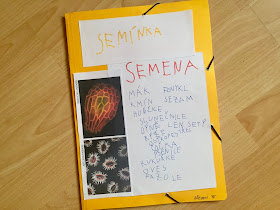 SEMÍNKA
SEMENA
MÁK
KMÍN SEZAM
HOŘČICE
SLUNEČNICE
DÝNĚ LEN SETÝ
RÝŽE
ČOČKA
PŠENICE
KUKUŘICE
OVES
FAZOLE